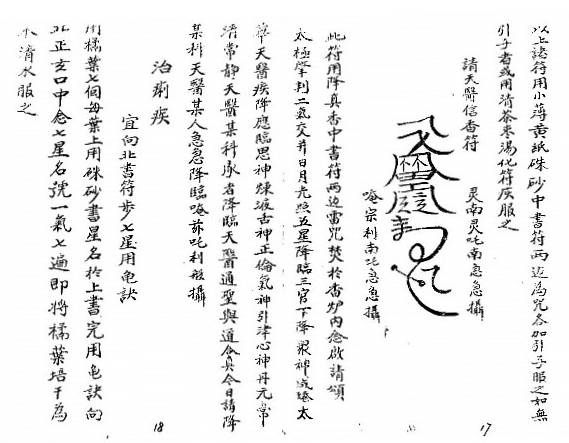 以上諸符用小薄黄紙硃砂中書符兩边為咒各加引子服之如無
引子者或用清茶枣湯化符灰服之
請天醫信香符
灵南灵吒南急急攝
唵宗利南吒急急攝
17
此符用降真香中書符兩边雷咒焚於香炉內念啟請頌
太極肇判二氣交并日月光照五星降臨三官下降眾神咸臻太
天醫疾降應臨思神煉液舌神正倫氣神引津心神丹元常
清常静天醫某科承者降臨天醫通聖與道合真今日請降
某科天醫某人急急降臨唵吒利攝
治痢疾
宜向北書符步七星用鬼訣
用橘葉七個每葉上用硃砂書星名於上書完用鬼訣向
北正亥口中念七星名號一氣七遍即將橘葉培干為
末清水服之
18